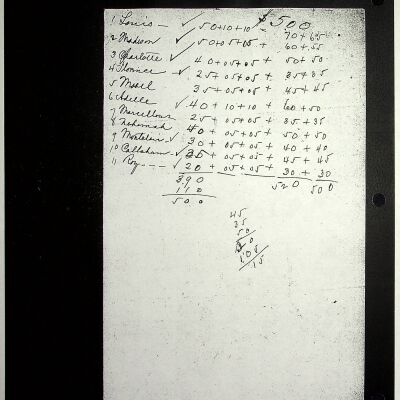 $500
1 Louis — ✓ 50+10+10 + 70+65
2 Madison ✓ 50+05+05 + 60+55
3 Charlotte ✓ 40+05+05 + 50+50
4 Florence ✓ 25+05+05 + 35+35
5 Mabel 35+05+05 + 45+45
6 Adelle ✓ 40+10+10 + 60+50
7 Marcellous 25+05+05 + 35+35
8 Nehemiah ✓ 40+05+05+ 50+50
9 ✓ 30+05+05+ 40+40
10 Callaham ✓ 35+05+05+ 45+45
11 Roy ---- ✓ 20+05+05+ 30+30
390 520 500
110
500
45
35
50
15